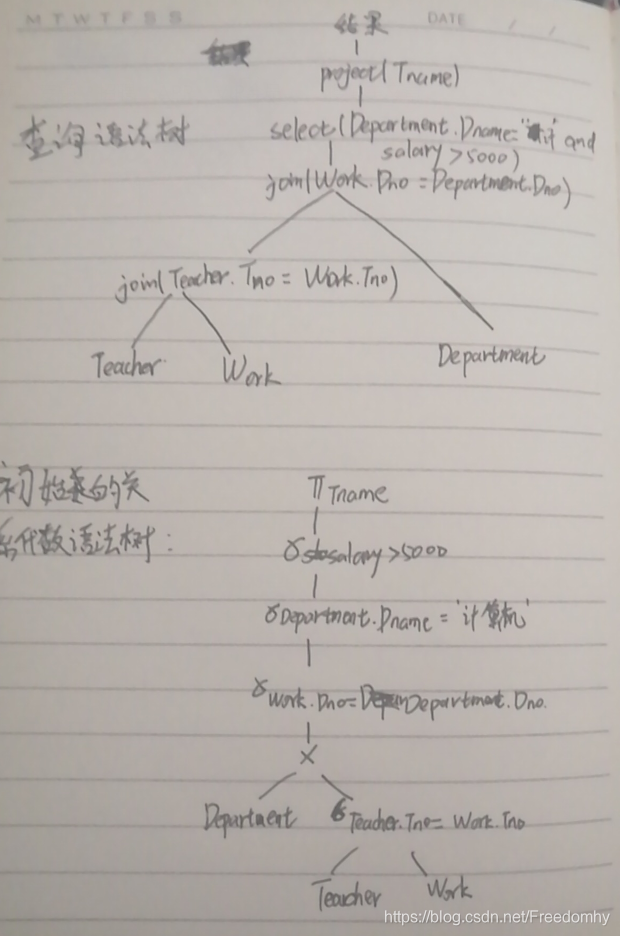 M T W T F S S
结果 DATE / /
project(Tname)
查询语法树
select(Department.Dname="计" and
salary>5000)
join(Work.Dno=Department.Dno)
join(Teacher.Tno= Work.Tno)
Teacher Work Department
初始的关
系代数语法树:
π Tname
σ salary>5000
σ Department.Dname='计算机'
σ Work.Dno=Department.Dno.
×
Department σ Teacher.Tno= Work.Tno
Teacher Work
https://blog.csdn.net/Freedomhy